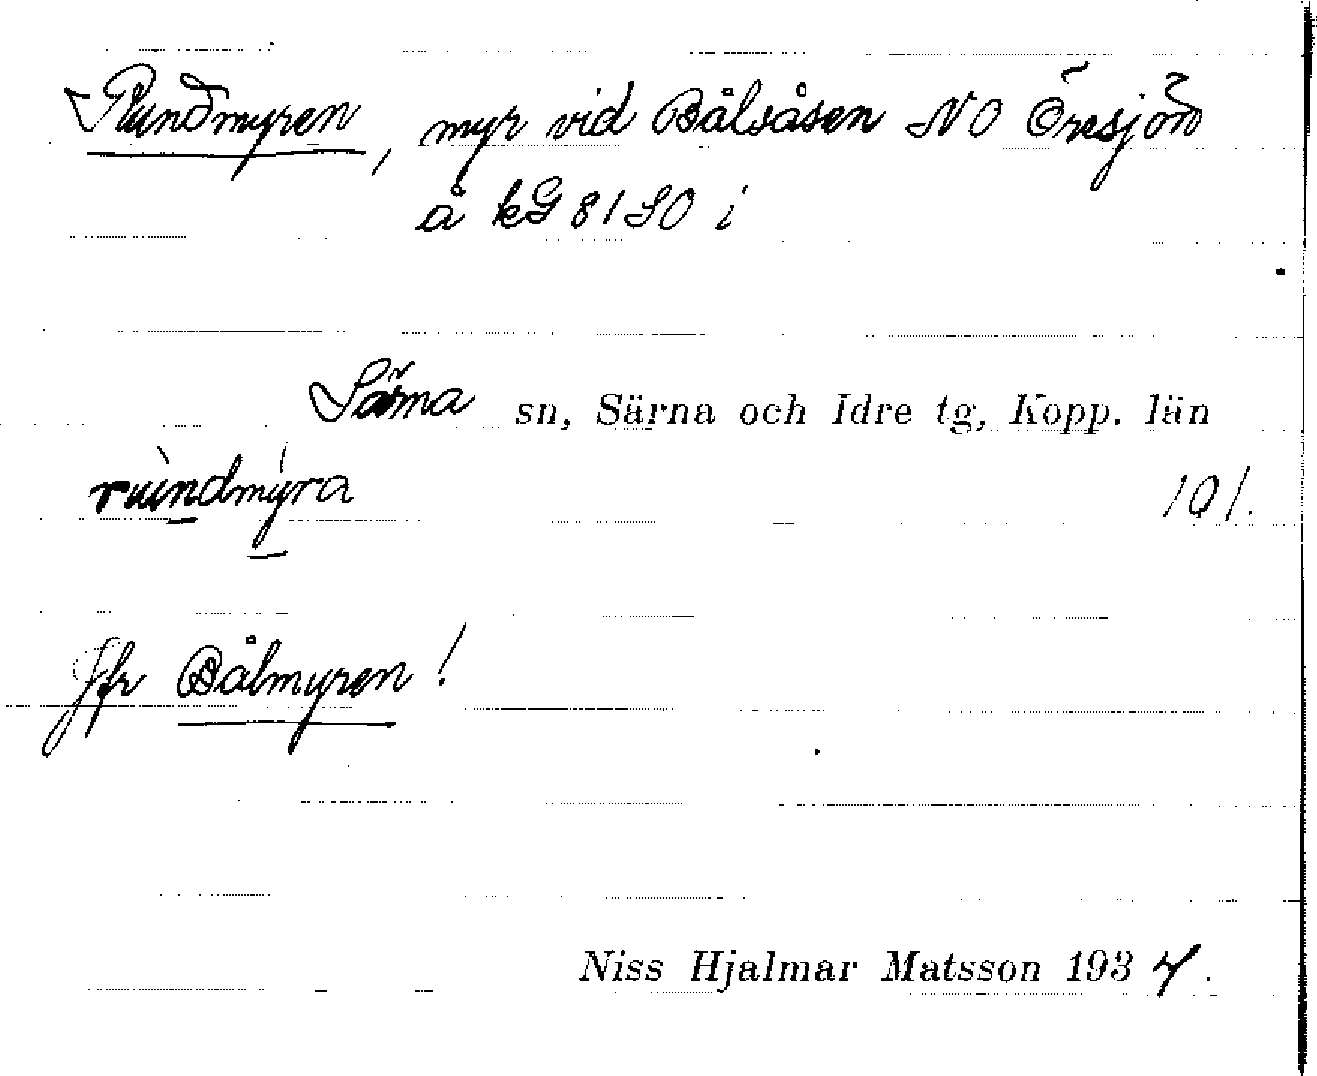 Rundmyren, myr vid Bålsåsen NO Öresjön
å kG 81 SO i
Särna sn, Särna och Idre tg, Kopp. län
rùndmýra 101.
Jfr Bålmyren!
Niss Hjalmar Matsson 1934.